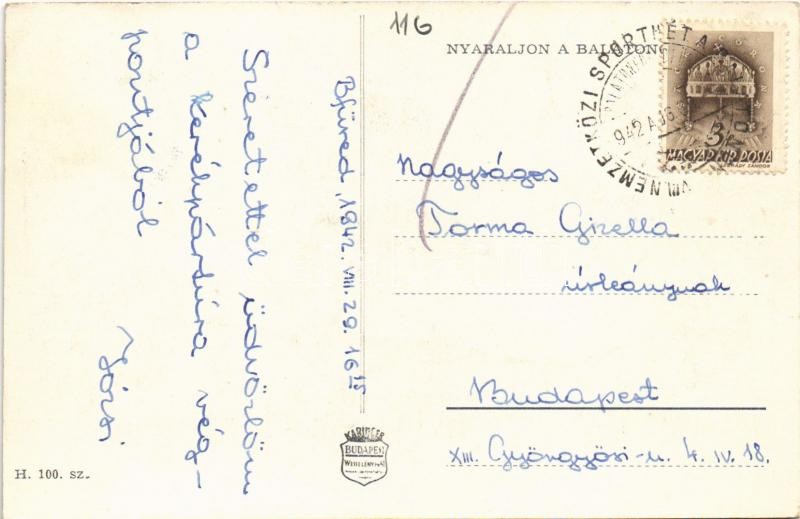 116
NYARALJON A BALATONO
VIII. NEMZETKÖZI SPORTHÉT A
942 AUG
MAGYAR KIR. POSTA
Szeretettel üdvözlöm
a kerékpártúra vég-
pontjából
Józsi
Bfüred, 1942. VIII. 29. 16 15
Nagyságos
Torma Gizella
úrleánynak
Budapest
XIII. Gyöngyösi-u. 4. IV. 18.
KARINGER
BUDAPEST
H. 100. sz.